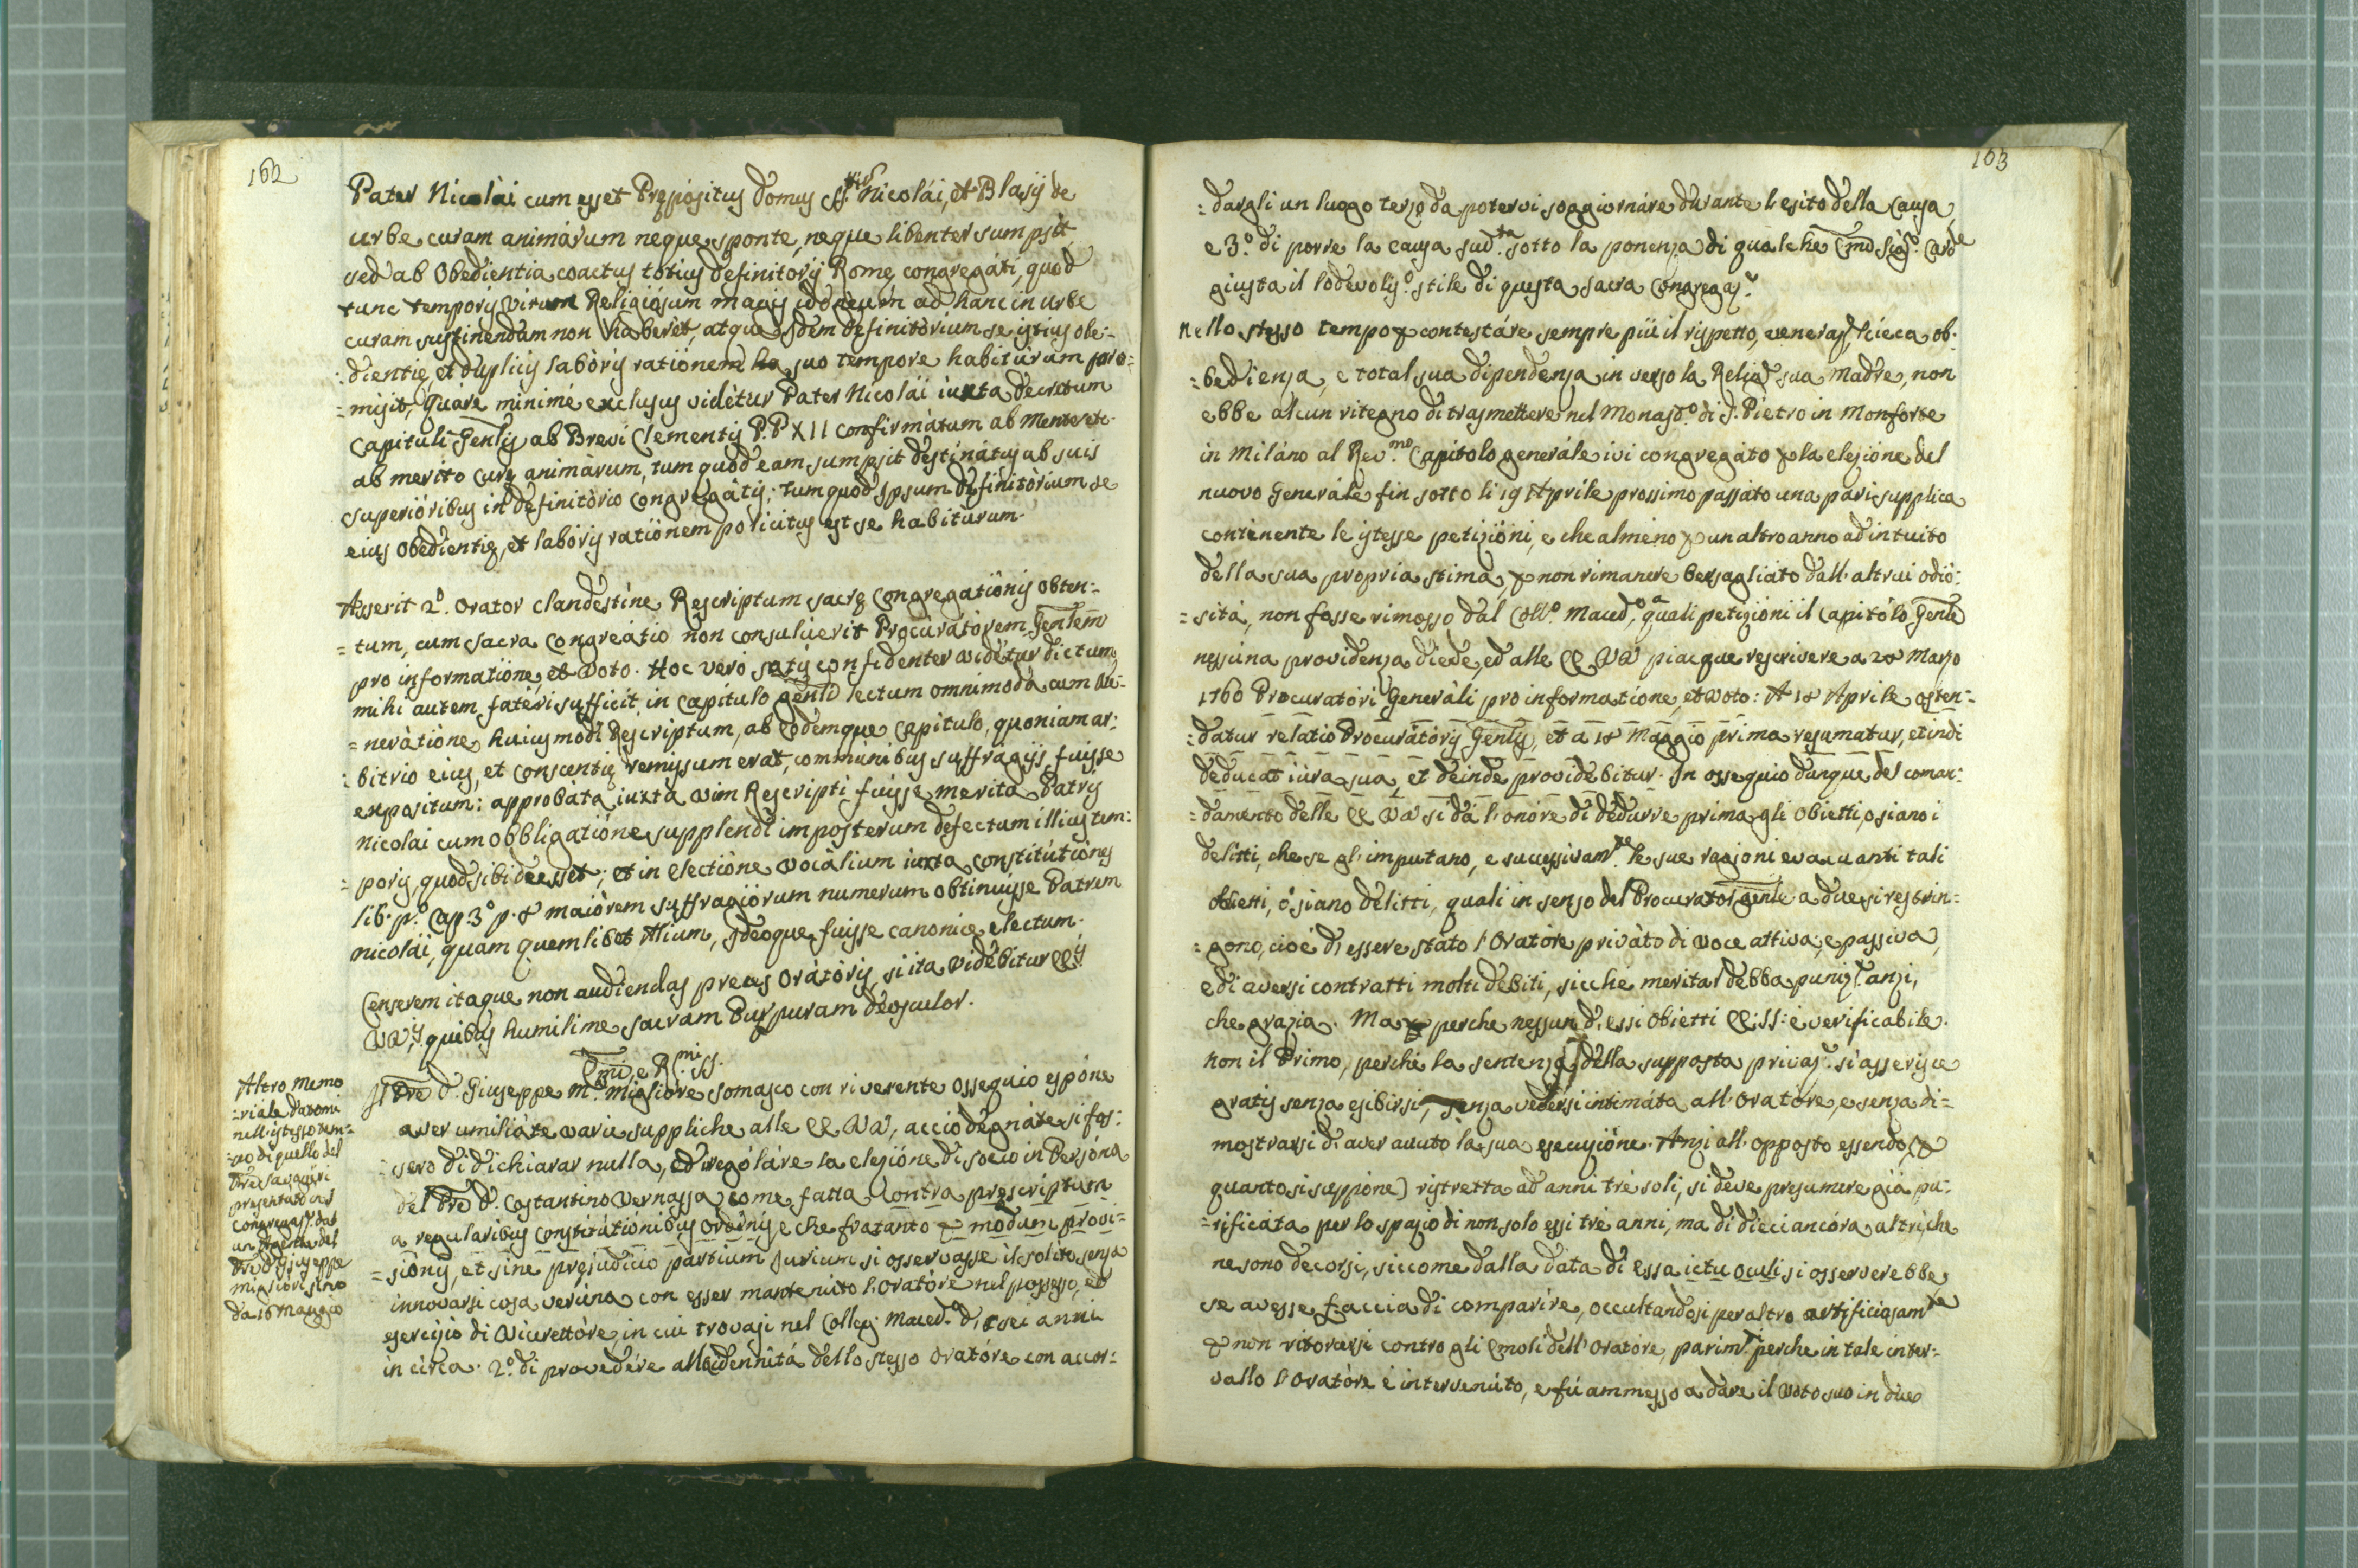 162
Pater Nicolai cum esset Prępositus domus SS. Nicolai, et Blasij de
urbe curam animarum neque sponte, neque libenter sumpsit
sed ab Obedientia coactus totius definitorij Romę congregati, quod
tunc temporis virum Religiosum magis idoneum ad hanc in urbe
curam sustinendam non haberet, atque Idem definitorium se istius obe:
:dientię, et duplicis laboris rationem suo tempore habiturum pro:
=misit, Quare minimè exclusus videtur Pater Nicolai iuxta decretum
Capituli Genlis ab Brevi Clementis P.P XII confirmatum ab Mente etc.
ab merito curę animarum, tum quod eam sumpsit destinatus ab suis
superioribus in definitorio congregatis; tum quod Ipsum definitorium se
eius obedientię, et laboris rationem policitus est se habiturum.
Asserit 2.º Orator clandestine Rescriptum sacrę Congregationis obten:
=tum, cum sacra Congreatio non consuluerit Procuratorem Genlem
pro informatione, et voto. Hoc vero satis confidenter videtur dictum
mihi autem fateri sufficit, in Capitulo genli lectum omnimoda cum ve:
=neratione huiusmodi Rescriptum, ab eodemque Capitulo, quoniam ar:
:bitrio eius, et conscentię remissum erat, communibus suffragijs fuisse
expositum: approbata iuxta vim Rescripti fuisse merita Patris
Nicolai cum obbligatione supplendi imposterum defectum illius tem:
=poris, quod sibi deesset; et in electione vocalium iuxta constitutiones
lib. p.º Cap. 3º p. 8 maiorem suffragiorum numerum obtinuisse Patrem
Nicolai, quam quemlibet Alium, Ideoque fuisse canonice electum.
Censerem itaque non audiendas preces Oratoris, si ita videbitur EE.is
VV.is quibus humilime sacram Purpuram deosculor.
Emi, e R.mi SS.
Il Pre D. Giuseppe M.ª Migliore Somasco con riverente ossequio espone
aver umiliate varie suppliche alle EE. VV, acciò degnate si fos:
:sero di dichiarar nulla, ed iregolare la elezione di socio in Persona
del Pre D. Costantino Vernassa come fatta Contra prescriptum
a regularibus Constitutionibus ordinis e che fratanto per modum provi=
=sionis, et sine prejudicio partium Jurium si osservasse il solito, senza
innovarsi cosa veruna con esser mantenuto l'Oratore nel possesso, ed
esercizio di Vicerettore in cui trovasi nel Colleg. Maced.º di sei anni
in circa. 2.º di provedere alla idennità dello stesso Oratore con accor:
Altro memo
:riale datomi
nell'istesso tem=
=po di quello del
Pre Savageri
presentato in S.
Congregaz.e dal
un Agente del
Pre D. Giuseppe
Migliori sino
da 16 Maggio
163
:dargli un luogo terzo da potervi soggiornare durante l'esito della Causa,
e 3.º di porre la causa sud.ta sotto la ponenza di qualche Emo Sig.r Carde
giusta il lodevolis.º stile di questa sacra Congregaz.e
Nello stesso tempo per contestare sempre più il rispetto, veneraz.e, cieca ob.
:bedienza, e total sua dipendenza in verso la Relig.e sua Madre, non
ebbe alcun ritegno di trasmettere nel Monast.º di S. Pietro in Monforte
in Milano al Rev.mo Capitolo generale ivi congregato per la elezione del
nuovo Generale fin sotto li 19 Aprile prossimo passato una pari supplica
continente le istesse petizioni, e che almeno per un altro anno ad intuito
della sua propria stima, per non rimanere bersagliato dall'altrui odio:
=sità, non fosse rimosso dal Coll.º Maced.º, a quali petizioni il Capitolo Genle
nessuna providenza diede, ed alle EE. VV piacque rescrivere a 28 Marzo
1760 Procuratori Generali pro informatione, et voto: A 18 Aprile osten=
:datur relatio Procuratoris Genlis, et a 18 Maggio prima resumatur, et indi
deducat iura sua, et deinde providebitur. In ossequio dunque del coman:
=damento delle EE VV si dà l'onore di dedurre prima gli Obietti, o siano i
delitti, che se gl'imputano, e successivam.te le sue ragioni evacuanti tali
obietti, ó siano delitti, quali in senso del Procurator genle a due si restrin=
=gono, cioè di essere stato l'Oratore privato di voce attiva, e passiva,
e di aversi contratti molti debiti, sicché meritar debba puniz.e anzi,
che grazia. Ma perche nessun di essi Obietti EE. SS: è verificabile.
non il Primo, perché la sentenza della supposta privaz.e si asserisce
gratis senza esibirsi, senza vedersi intimata all'Oratore, e senza di=
mostrarsi di aver avuto la sua esecuzione. Anzi all'opposto essendo, (per
quanto si suppone) ristretta ad anni trè soli, si deve presumere già pu:
=rificata per lo spazio di non solo essi trè anni, ma di dieci ancora altri, che
ne sono decorsi, siccome dalla data di essa ictu oculi si osserverebbe,
se avesse faccia di comparire, occultandosi per altro artificiosam.te
per non ritorcersi contro gli Emoli dell'Oratore, parim.ti perche in tale inter:
vallo l'Oratore è intervenuto, e fù ammesso a dare il voto suo in due